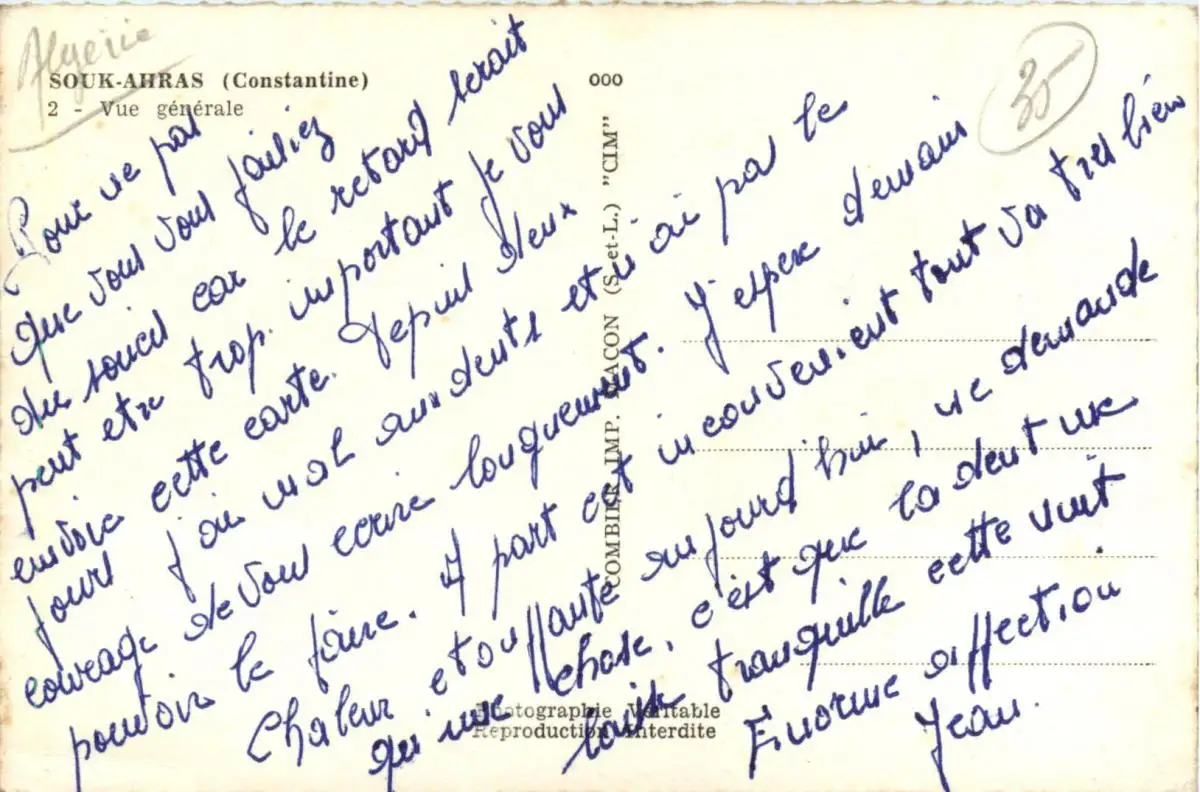 Algérie
SOUK-AHRAS (Constantine)
2 - Vue générale
000
35
Pour ne pas
que vous vous fassiez
du soucis car le retard serait
peut etre trop important je vous
envoie cette carte. Depuis deux
jours j'ai mal aux dents et n'ai pas le
courage de vous ecrire longuement. J'espere demain
pouvoir le faire. A part cet inconvenient tout va tres bien
Chaleur etouffante aujourd'hui, je demande
qu'une chose, c'est que la dent me
laisse tranquille cette nuit.
Enorme affection
Jean.
COMBIER IMP. MACON (S.-et-L.) "CIM"
Photographie Véritable
Reproduction Interdite